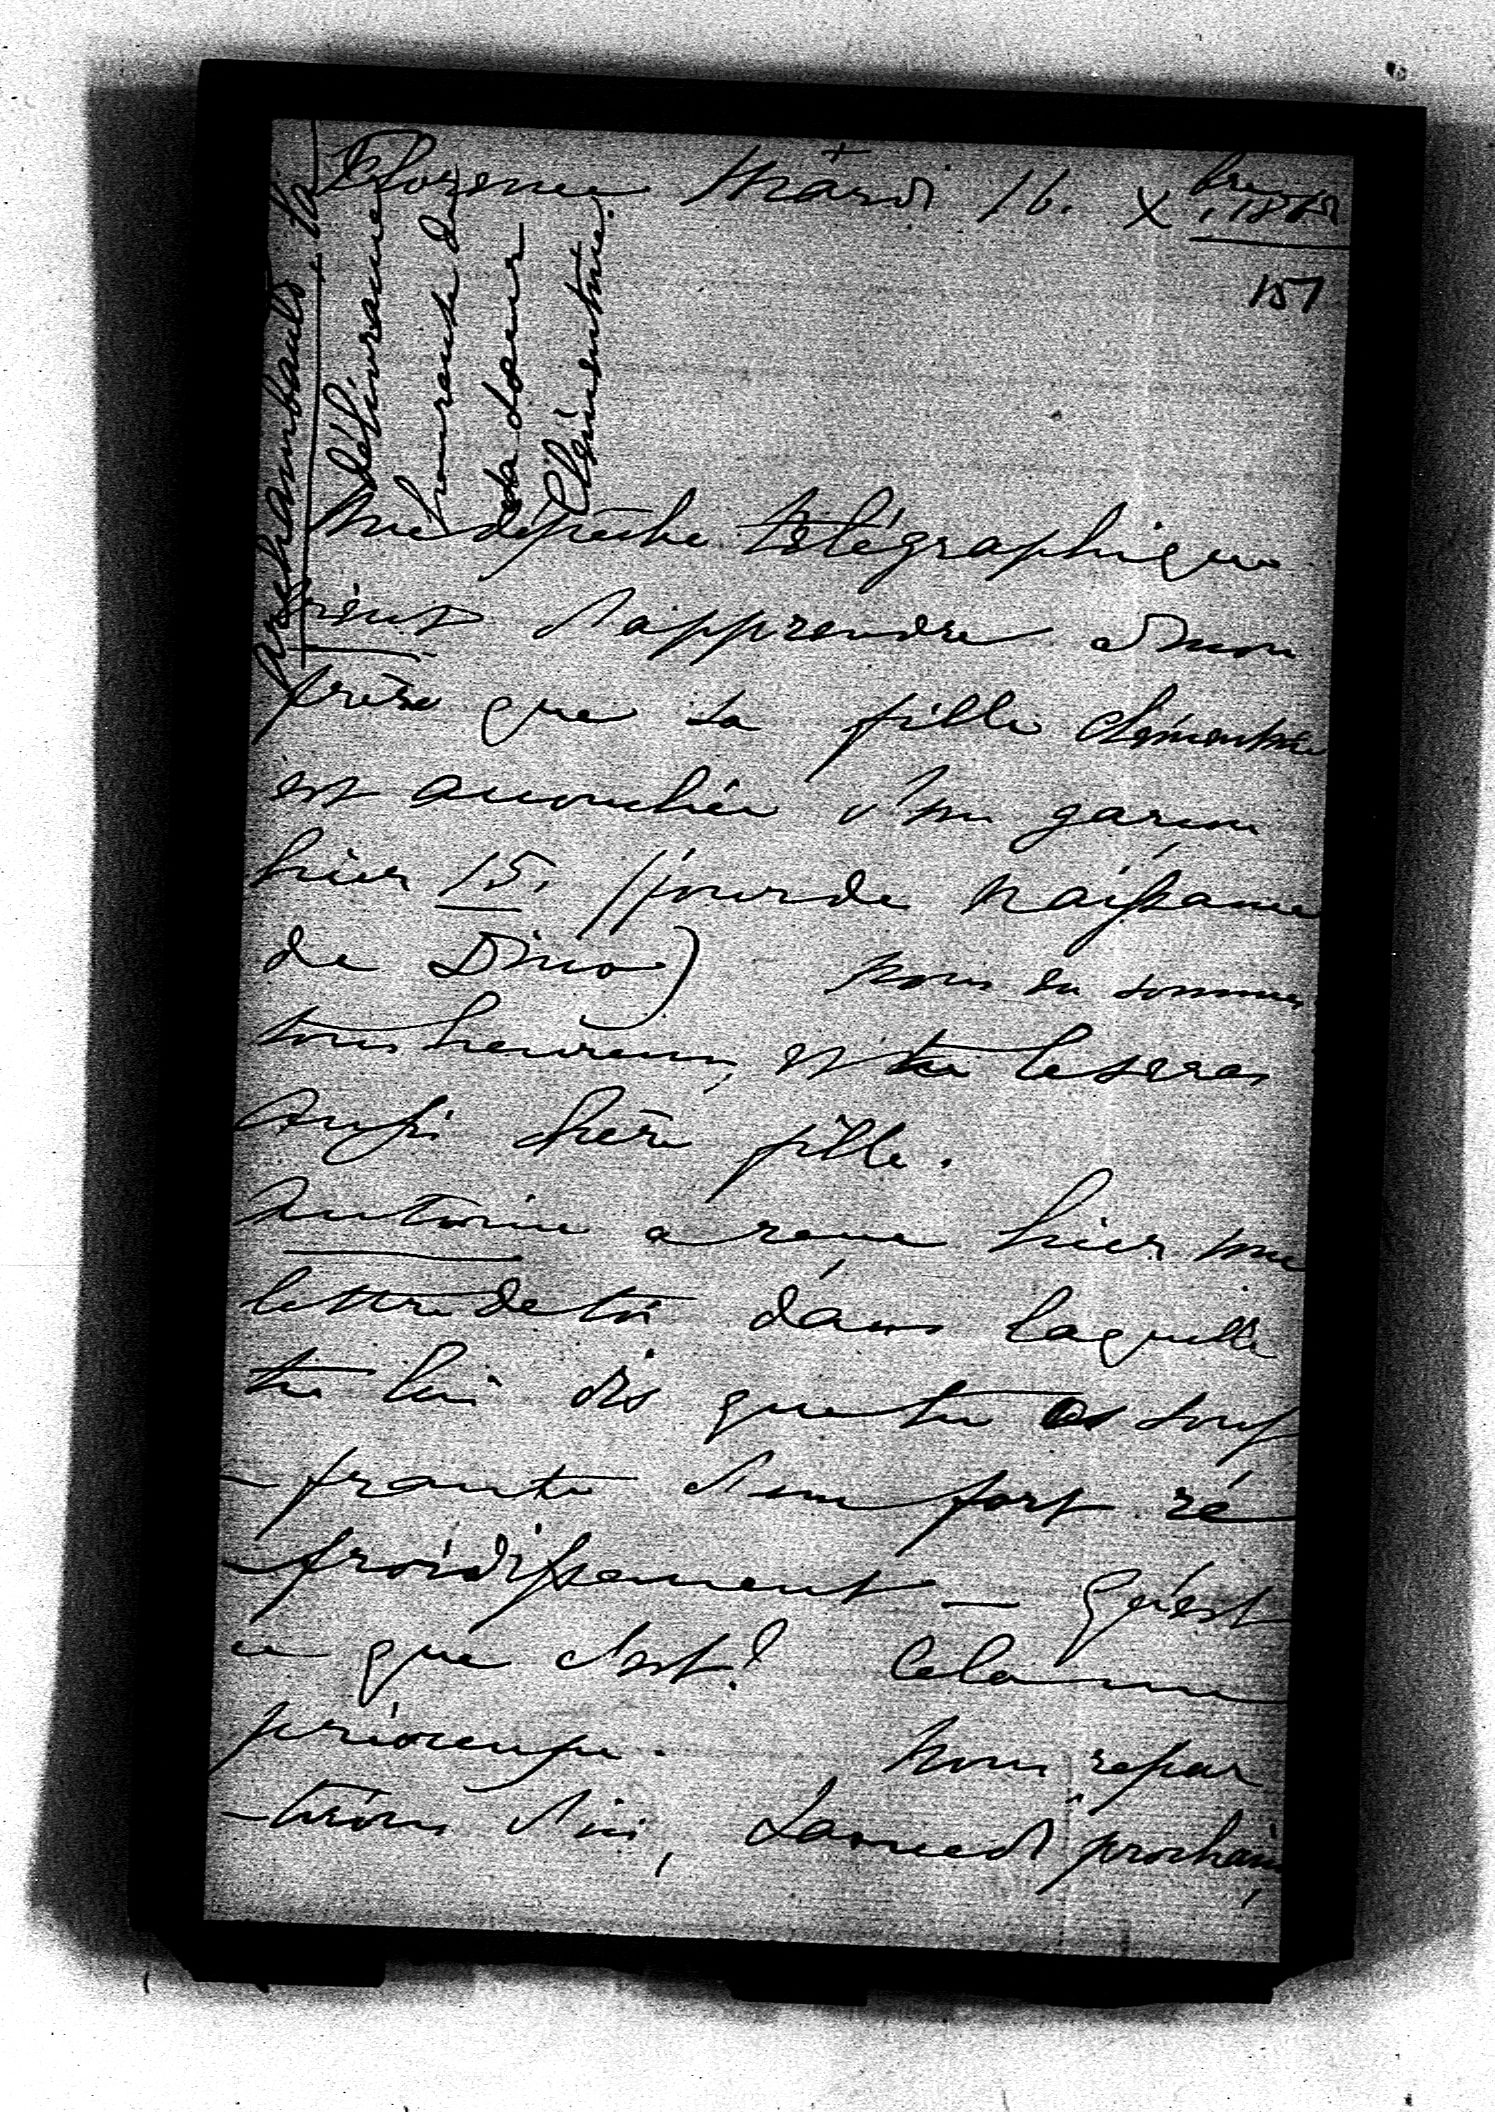 Florence Mardi 16. Xbre
157
Archambault. la
délivrance
de
sa soeur
Clémentine.
Une dépêche télégraphique
vient d'apprendre à mon
frère que sa fille Clémentine
est accouchée d'un garçon
hier 15. (jour de naissance
de Dino) nous en sommes
tous heureux, et tu le seras
aussi chère fille.
Antoine a reçu hier une
lettre de toi dans laquelle
tu lui dis que tu es souf
-frante d'un fort re
-froidissement - Qu'est
ce que c'est? Cela me
préoccupe. Nous repar
-tirons d'ici, Samedi prochain,